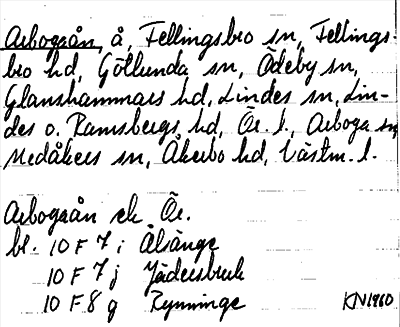 Arbogaån, å, Fellingsbro sn, Fellings-
bro hd, Götlunda sn, Ödeby sn,
Glanshammars hd, Lindes sn, Lin-
des o. Ramsbergs hd, Ör. l., Arboga sn,
Medåkers sn, Åkerbo hd, Västm. l.
Arbogaån ek Ör.
bl. 10 F 7 i Älvänge
10 F 7 j Jädersbruk
10 F 8 g Rynninge
KN1960